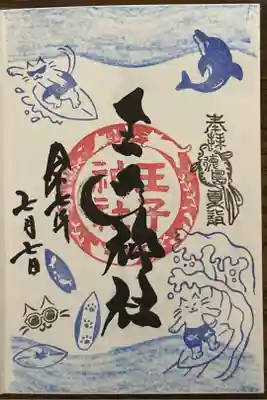 奉拝
徳島夏詣
王子神社
王子
神社
令和七年
七月七日